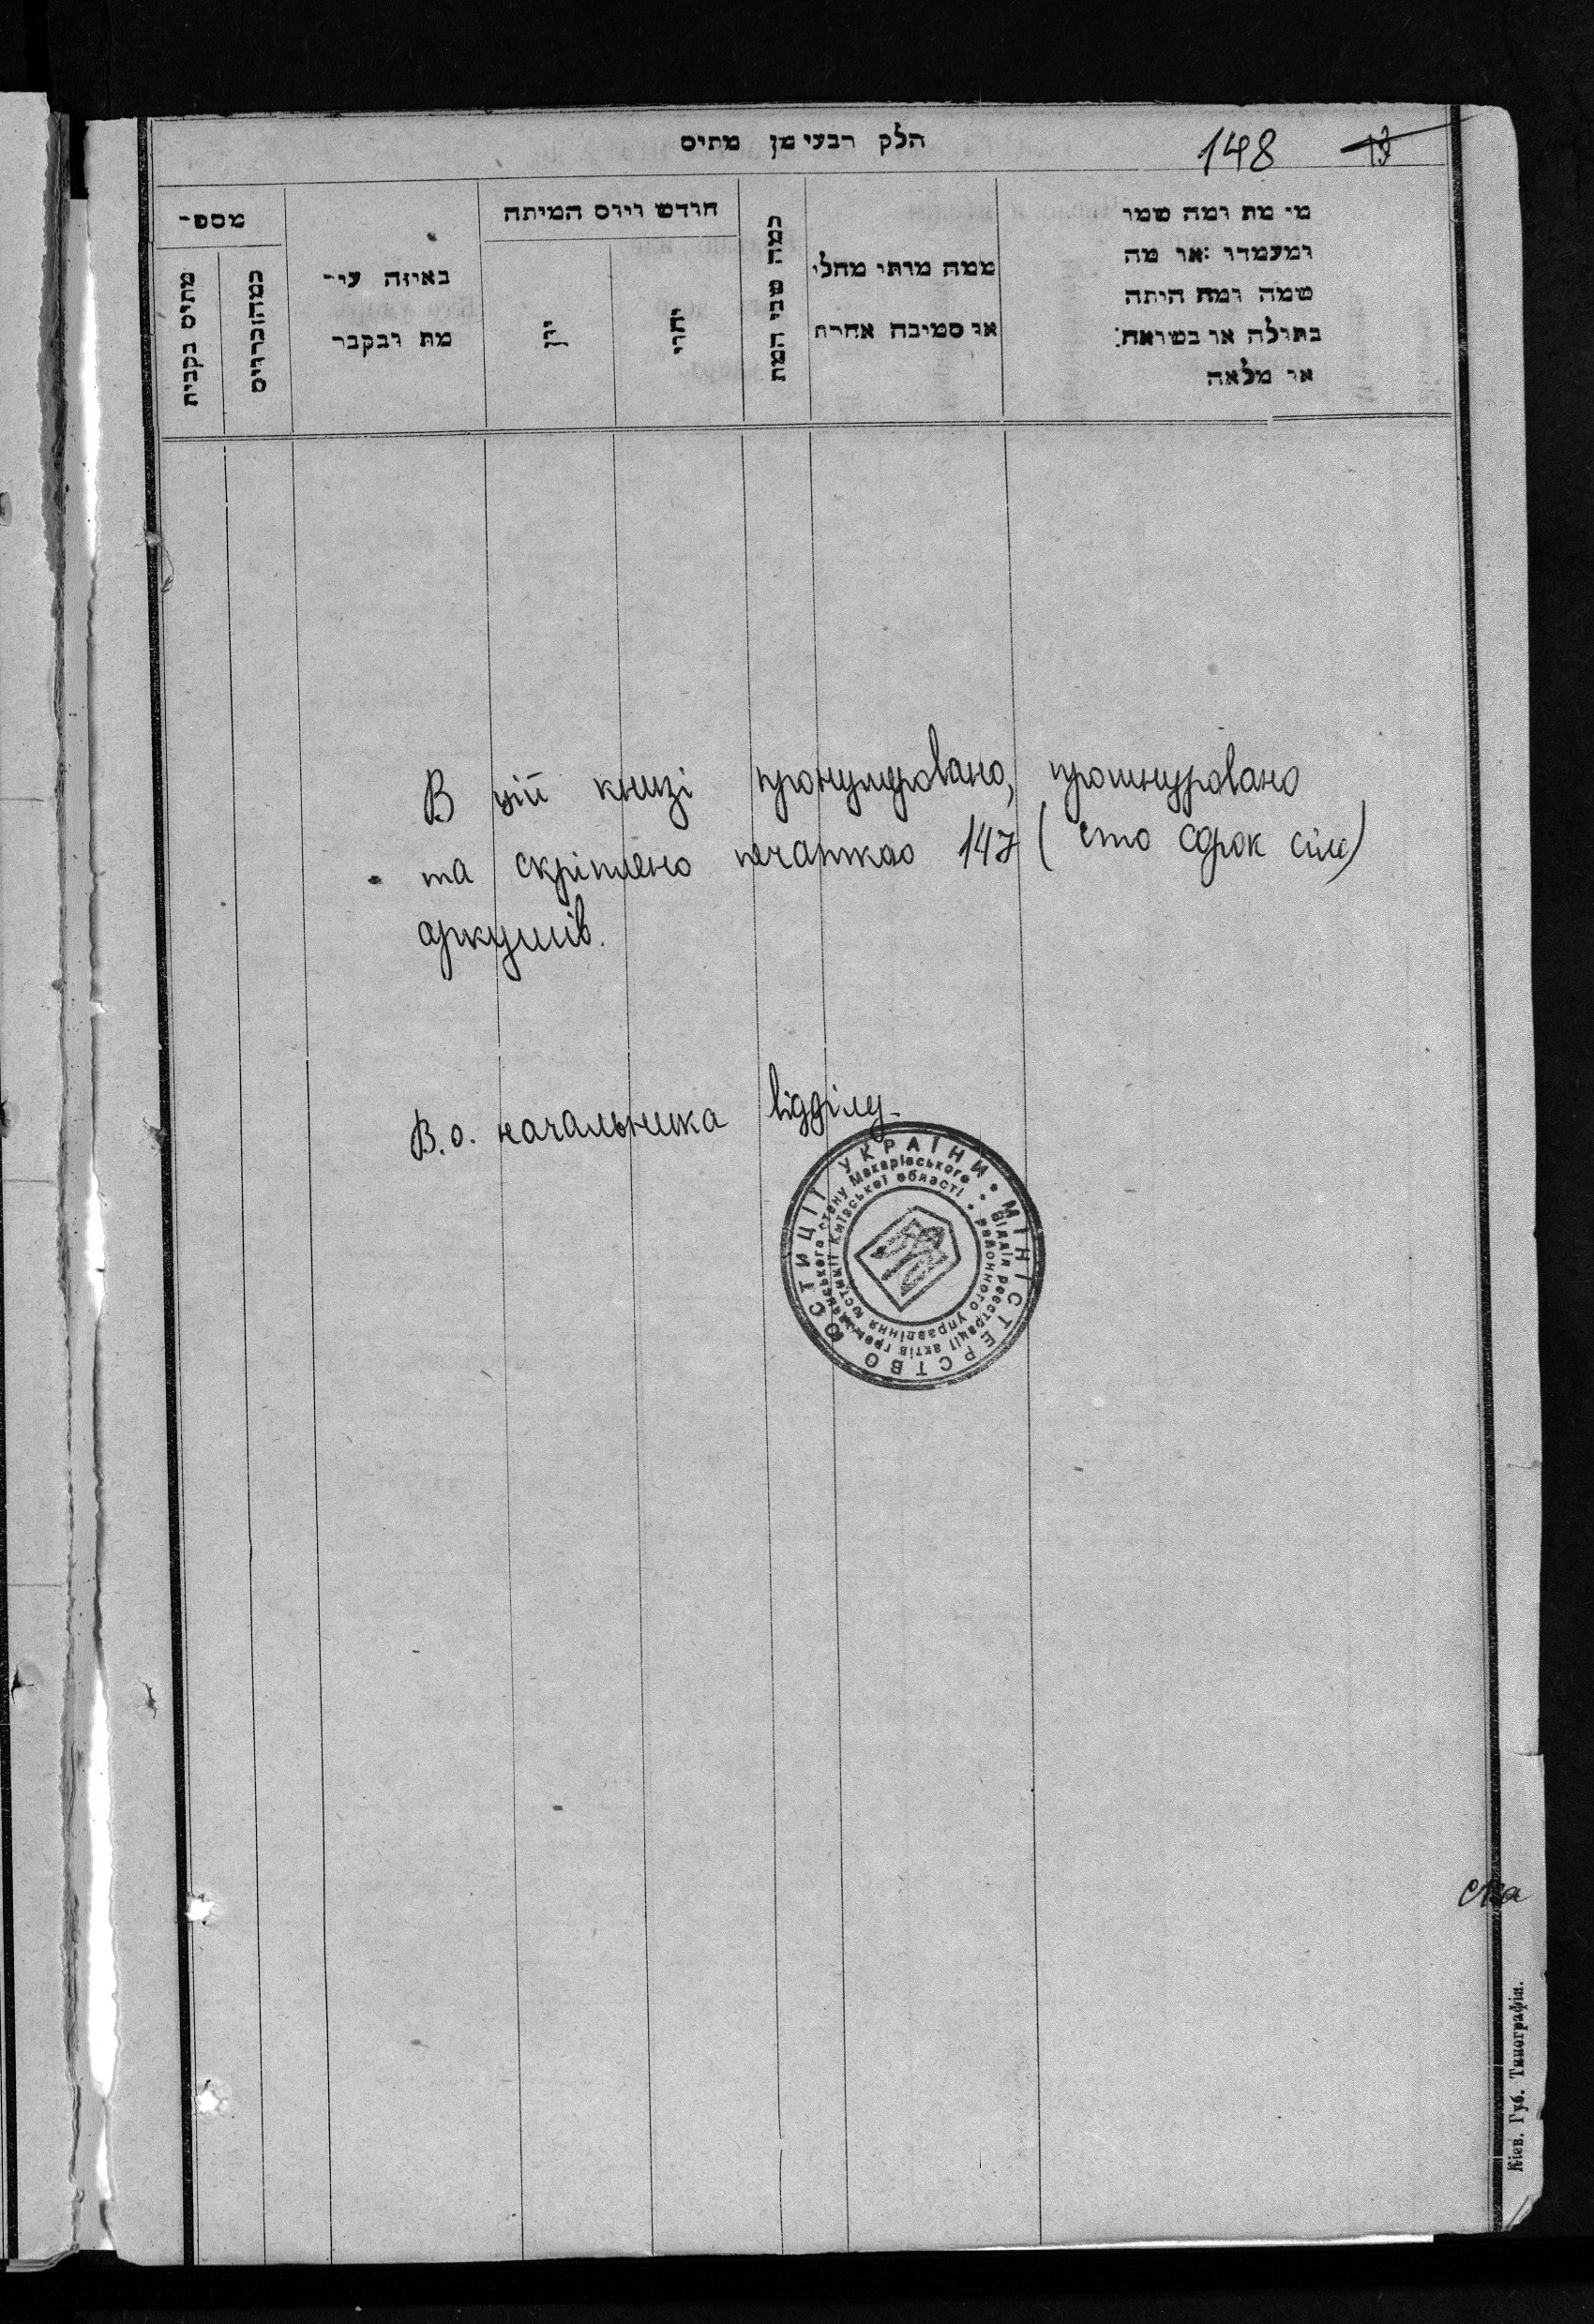 הלק רבעי מן מתים
148
13
מספ־
מתים בקבית
כמהוכרויס
באיזה עי־
מת ובקבר
חודש ויום המיתה
יהודי
כמה שני המת
ממה מותי מחלי
או סמיבה אחרת
מי מת ומה שמו
ומעמדו :או מה
שמה ומה היתה
בתולה או בשואה:
או מלאה
В цій книзі пронумеровано, прошнуровано
та скріплено печаткою 147 (сто сорок сім)
аркушів.
В.о. начальника відділу
МІНІСТЕРСТВО ЮСТИЦІЇ УКРАЇНИ
Відділ реєстрації актів громадянського стану Макарівського
районного управління юстиції Київської області
Кіев. Губ. Типографія.